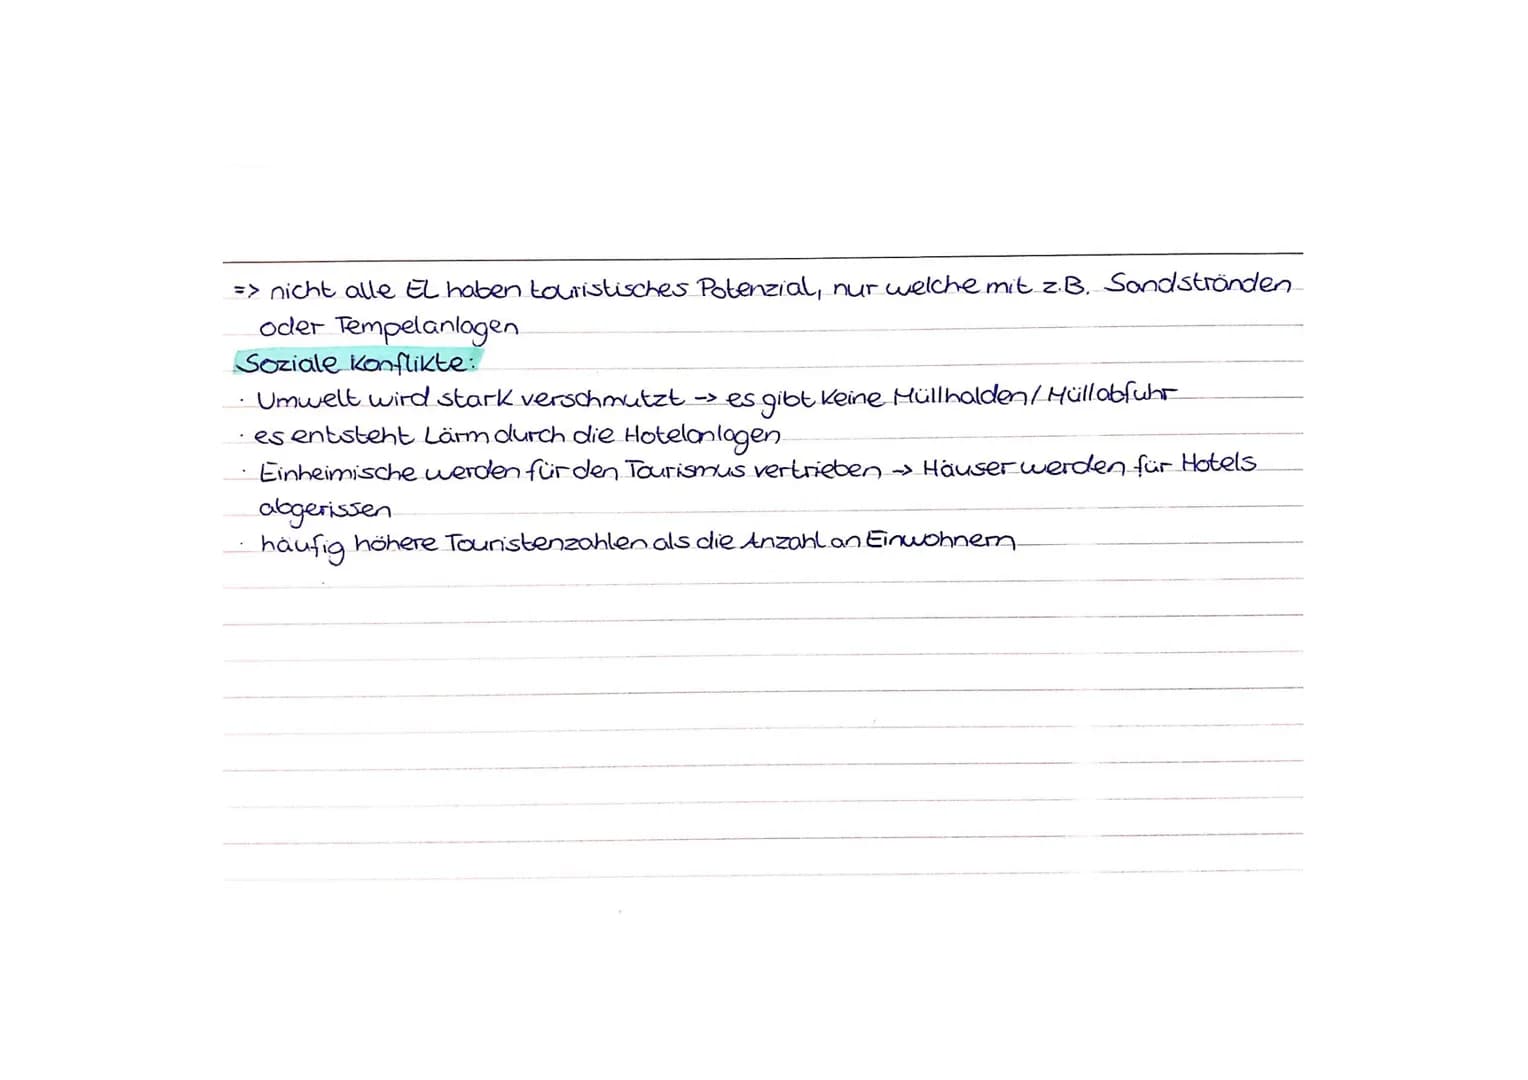 => nicht alle EL haben touristisches Potenzial, nur welche mit z.B. Sandstränden
oder Tempelanlagen
Soziale Konflikte:
· Umwelt wird stark verschmutzt -> es gibt keine Müllhalden/Müllabfuhr
· es entsteht Lärm durch die Hotelanlagen
· Einheimische werden für den Tourismus vertrieben -> Häuser werden für Hotels
abgerissen
· häufig höhere Touristenzahlen als die Anzahl an Einwohnern